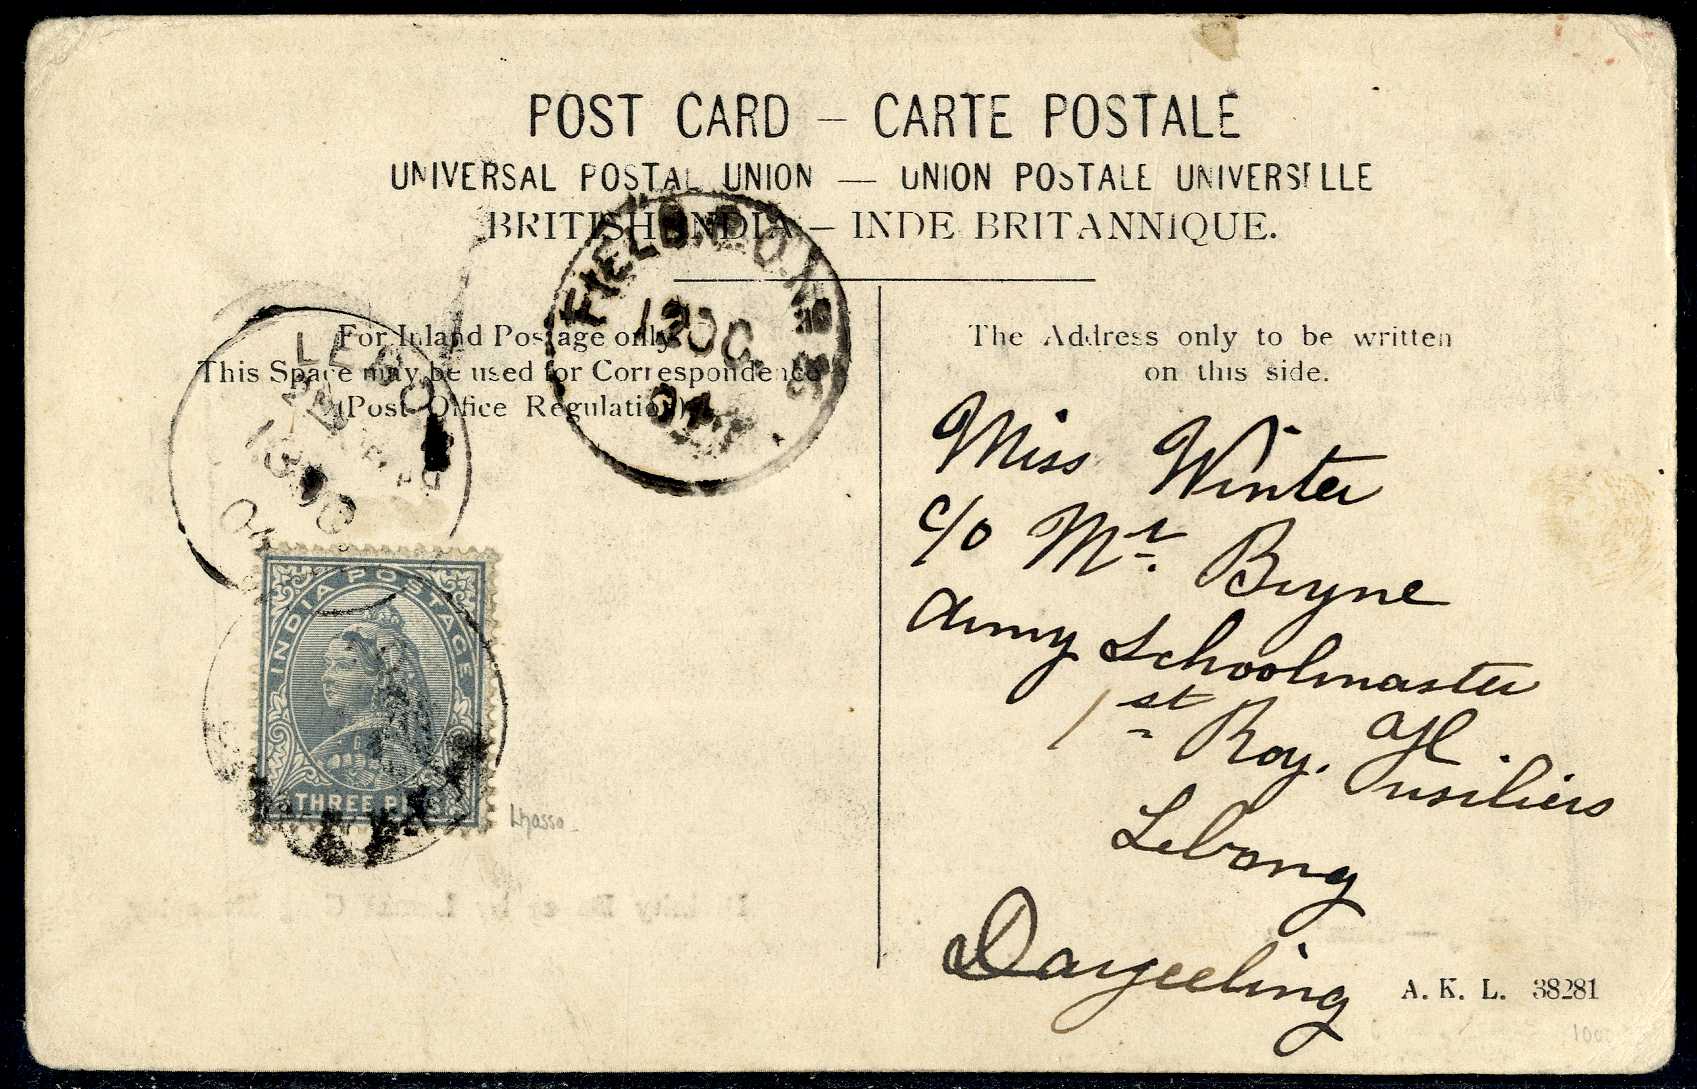 POST CARD – CARTE POSTALE
UNIVERSAL POSTAL UNION — UNION POSTALE UNIVERSELLE
BRITISH INDIA – INDE BRITANNIQUE.
For Inland Postage only.
This Space may be used for Correspondence
(Post Office Regulation).
FIELD P.O. No
12 OC
04
LEBONG
13 OC
04
INDIA POSTAGE
THREE PIES
Lhasso
The Address only to be written
on this side.
Miss Winter
c/o Mr. Byrne
Army Schoolmaster
1st Roy. Hl. Fusiliers
Lebong
Darjeeling
A. K. L. 38281